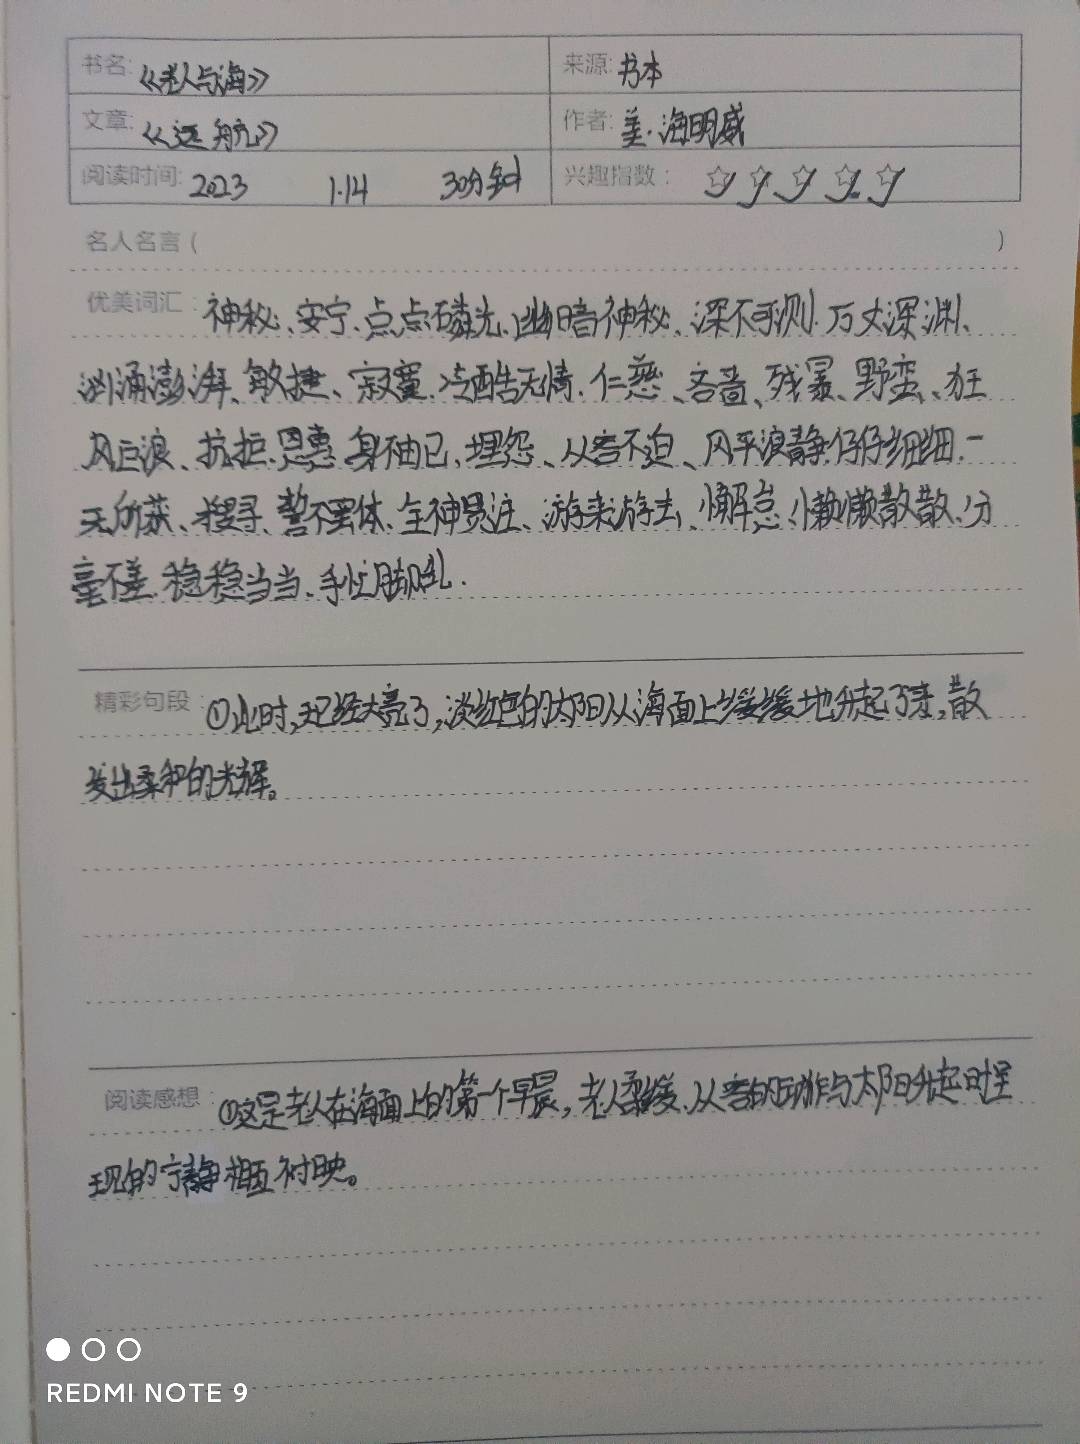 书名:《老人与海》 来源:书本
文章:《远航》 作者:美·海明威
阅读时间:2023 1.14 30分钟 兴趣指数:☆☆☆☆☆
名人名言( )
优美词汇:神秘、安宁、点点磷光、幽暗神秘、深不可测、万丈深渊、
汹涌澎湃、敏捷、寂寞、冷酷无情、仁慈、吝啬、残暴、野蛮、狂
风巨浪、抗拒、恩惠、身不由已、埋怨、从容不迫、风平浪静、仔仔细细、一
无所获、搜寻、誓不罢休、全神贯注、游来游去、懈怠、懒懒散散、分
毫不差、稳稳当当、手忙脚乱.
精彩句段:①此时,天已经大亮了,淡红色的太阳从海面上缓缓地升起了来,散
发出柔和的光辉。
阅读感想:①这是老人在海面上的第一个早晨,老人柔缓、从容的动作与太阳升起时呈
现的宁静相互衬映。
REDMI NOTE 9